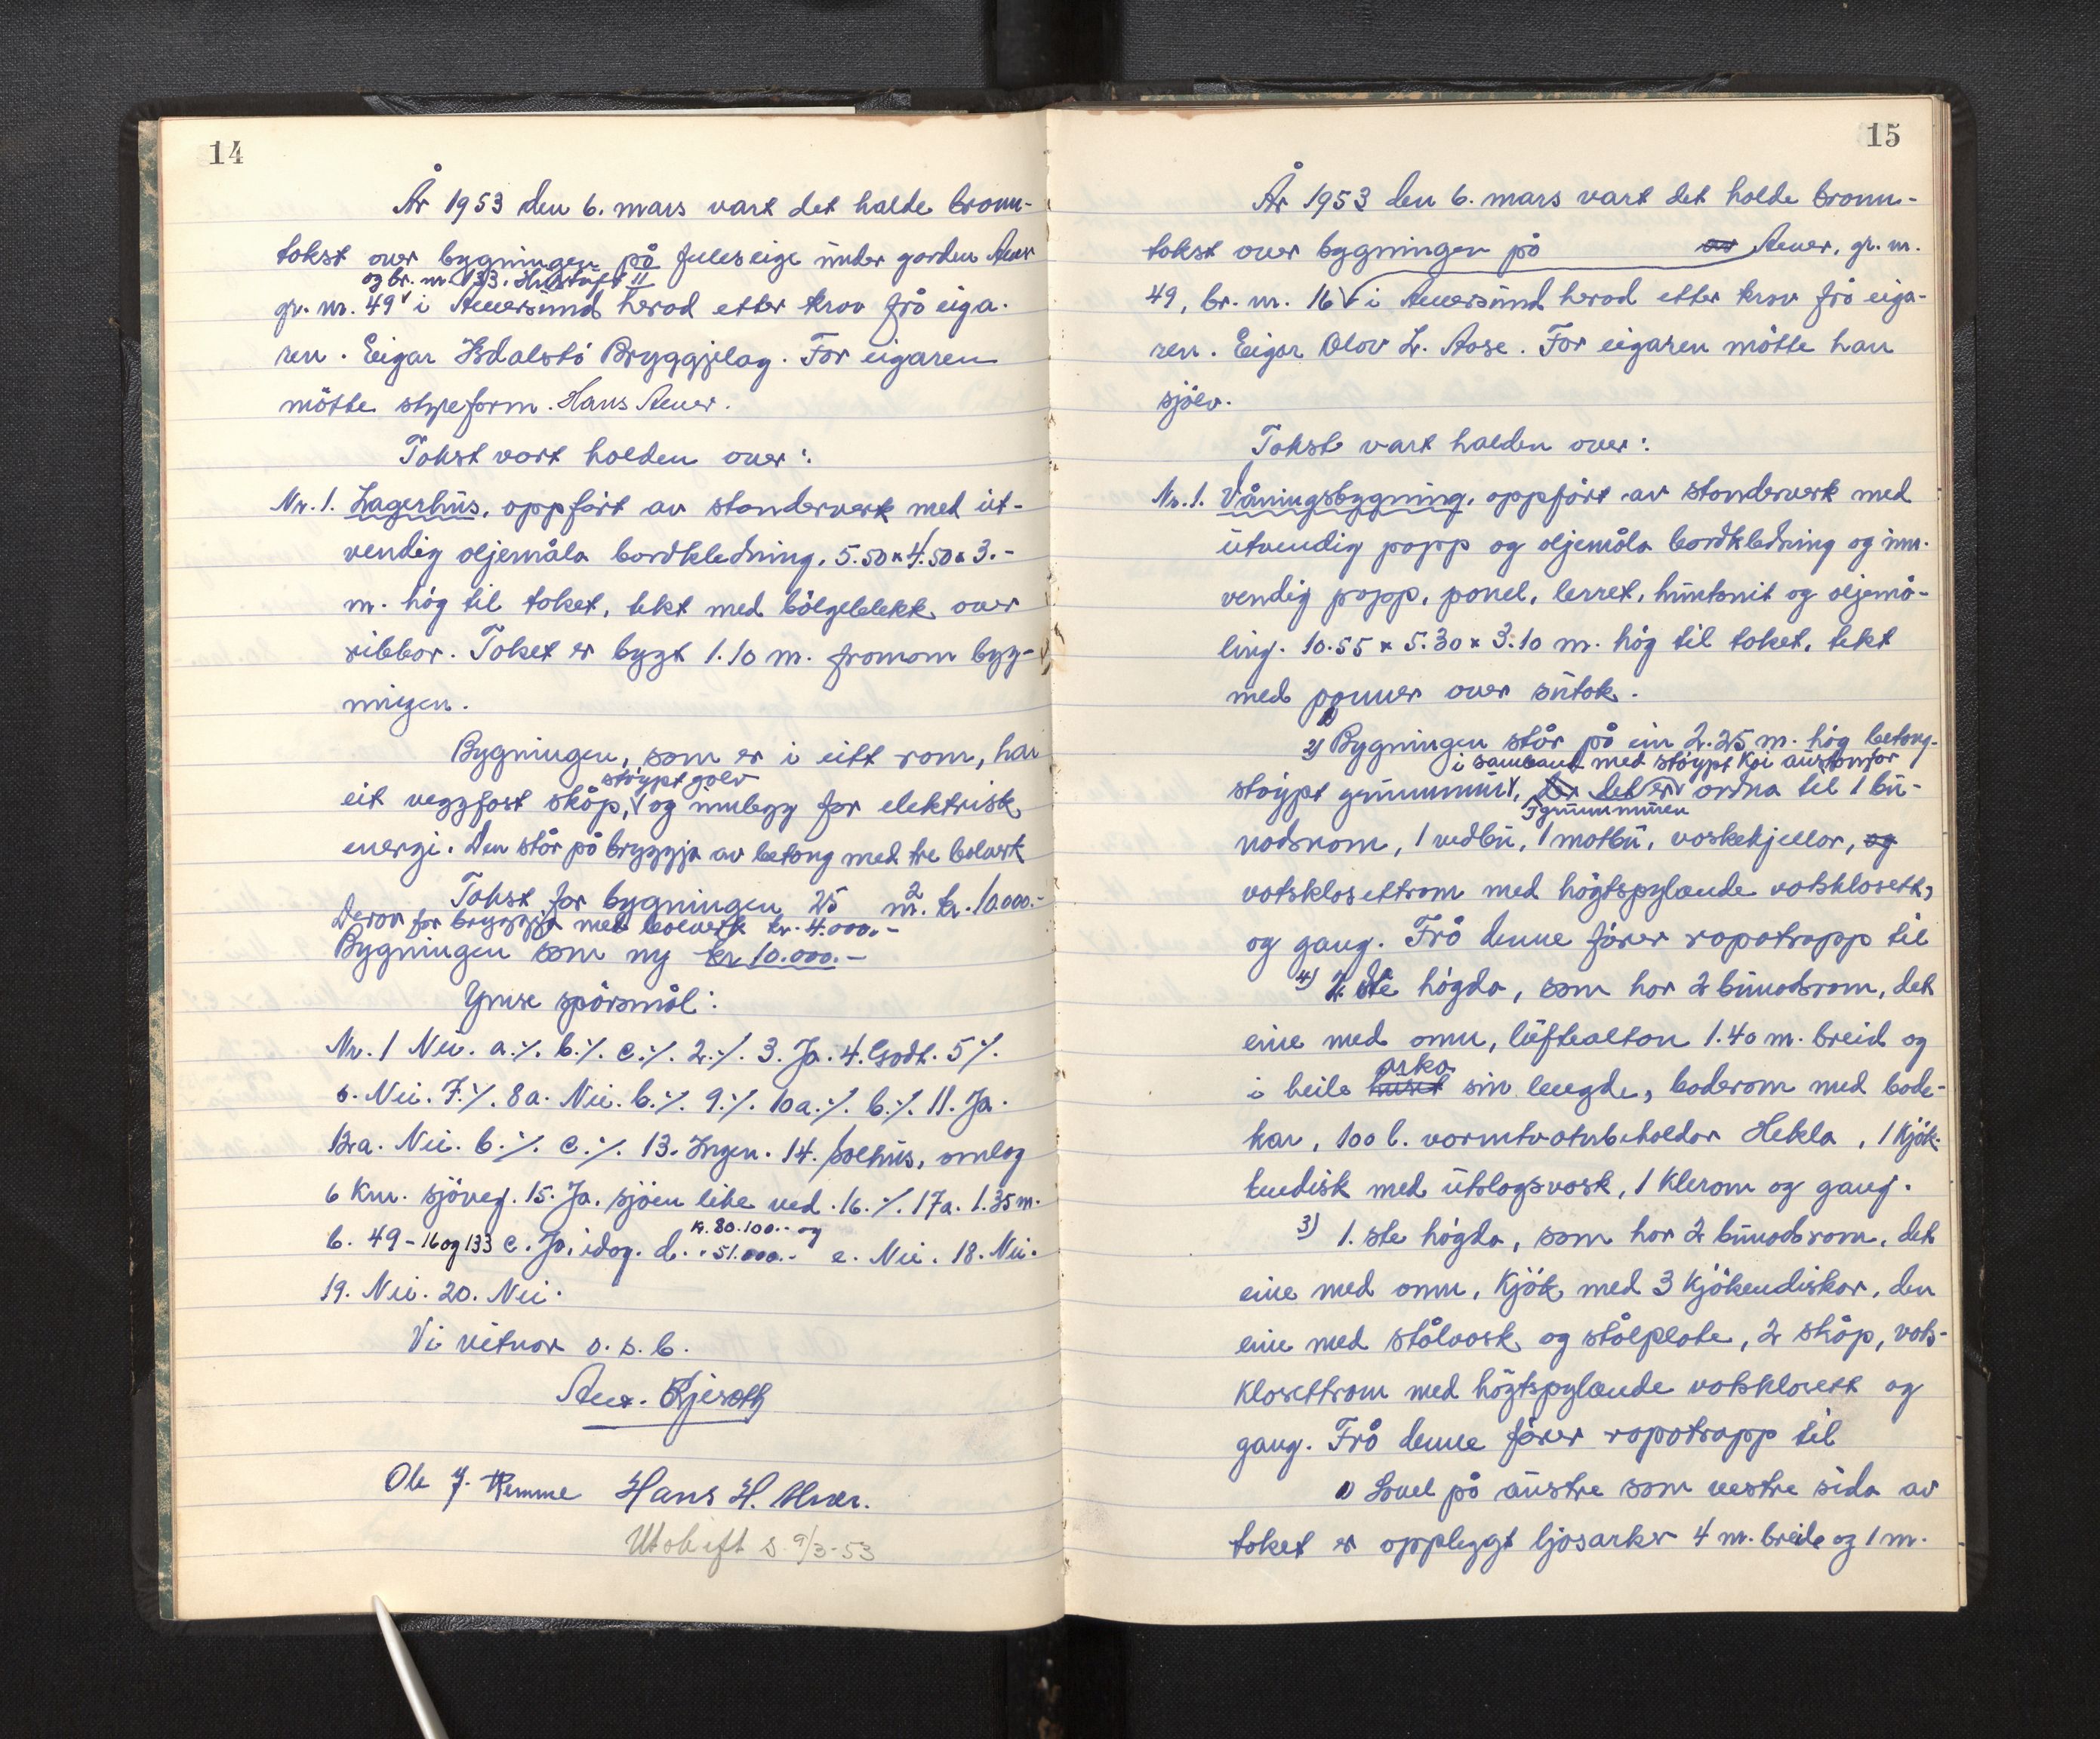 14
År 1953 den 6. mars vart det halde brann-
takst over bygningen på Juleseige under garden Alver
og br. nr. 133. Hustuft II
gr. nr. 49 i Alversund herad etter krav frå eiga-
ren. Eigar Isdalstö Bryggjelag. For eigaren
mötte styreform. Hans Alver.
Takst vart halden over:
Nr. 1. Lagerhus, oppfört av standerverk med ut-
vendig oljemåla bordkledning, 5.50 x 4.50 x 3.-
m. hög til taket, tekt med bölgeblekk over
ribbor. Taket er bygt 1.10 m. framom byg-
ningen.
Bygningen, som er i eitt rom, har
stöypt golv
eit veggfast skåp, og innlegg for elektrisk
energi. Den står på bryggja av betong med tre bolverk
Takst for bygningen 25 m². kr. 10.000.-
Derav for bryggja med bolverk kr. 4.000.-
Bygningen som ny kr 10.000.-
Ymse spörsmål:
Nr. 1 Nei. a. ./. b. ./. c. ./. 2. ./. 3. Ja. 4. Godt. 5 ./.
6. Nei. 7. ./. 8a. Nei. b. ./. 9. ./. 10a. ./. b. ./. 11. Ja.
12a. Nei. b. ./. c. ./. 13. Ingen. 14. , omlag
6 km. sjöveg. 15. Ja. sjöen like ved. 16. ./. 17a. 1.35 m.
kr. 80.100.- og
b. 49 - 16 og 133 c. Ja, idag. d. " 51.000.- e. Nei. 18. Nei.
19. Nei. 20. Nei.
Vi vitnar o. s. b.
Ole J. Hans H. Alver.
Utskift s. 9/3-53
15
År 1953 den 6. mars vart det halde brann-
takst over bygningen på av Alver, gr. nr.
49, br. nr. 16 i Alversund herad etter krav frå eiga-
ren. Eigar Olav L. Aase. For eigaren mötte han
sjölv.
Takst vart halden over:
Nr. 1. Våningsbygning, oppfört av standerverk med
utvendig papp og oljemåla bordkledning og inn-
vendig papp, panel, lerret, huntonit og oljemå-
ling. 10.55 x 5.30 x 3.10 m. hög til taket, tekt
med panner over sutak.
2) Bygningen står på ein 2.25 m. hög betong-
i samband med stöypt kai austanfor
stöypt grunnmur, der det er ordna til 1 bu-
I grunnmuren
nadsrom, 1 vedbu, 1 matbu, vaskekjellar, og
vatsklosettrom med högtspylande vatsklosett,
og gang. Frå denne förer rapatrapp til
4) 2. dre högda, som har 2 bunadsrom, det
eine med omn, luftealtan 1.40 m. breid og
arka
i heile huset sin lengde, baderom med bade-
kar, 100 l. varmtvatnbehaldar Hekla, 1 kjök-
kendisk med utslagsvask, 1 klerom og gang.
3) 1. ste högda, som har 2 bunadsrom, det
eine med omn, kjök med 3 kjökendiskar, den
eine med stålvask og stålplate, 2 skåp, vats-
klosettrom med högtspylande vatsklosett og
gang. Frå denne förer rapatrapp til
1) Såvel på austre som vestre sida av
taket er opplygt ljosarker 4 m. breide og 1 m.